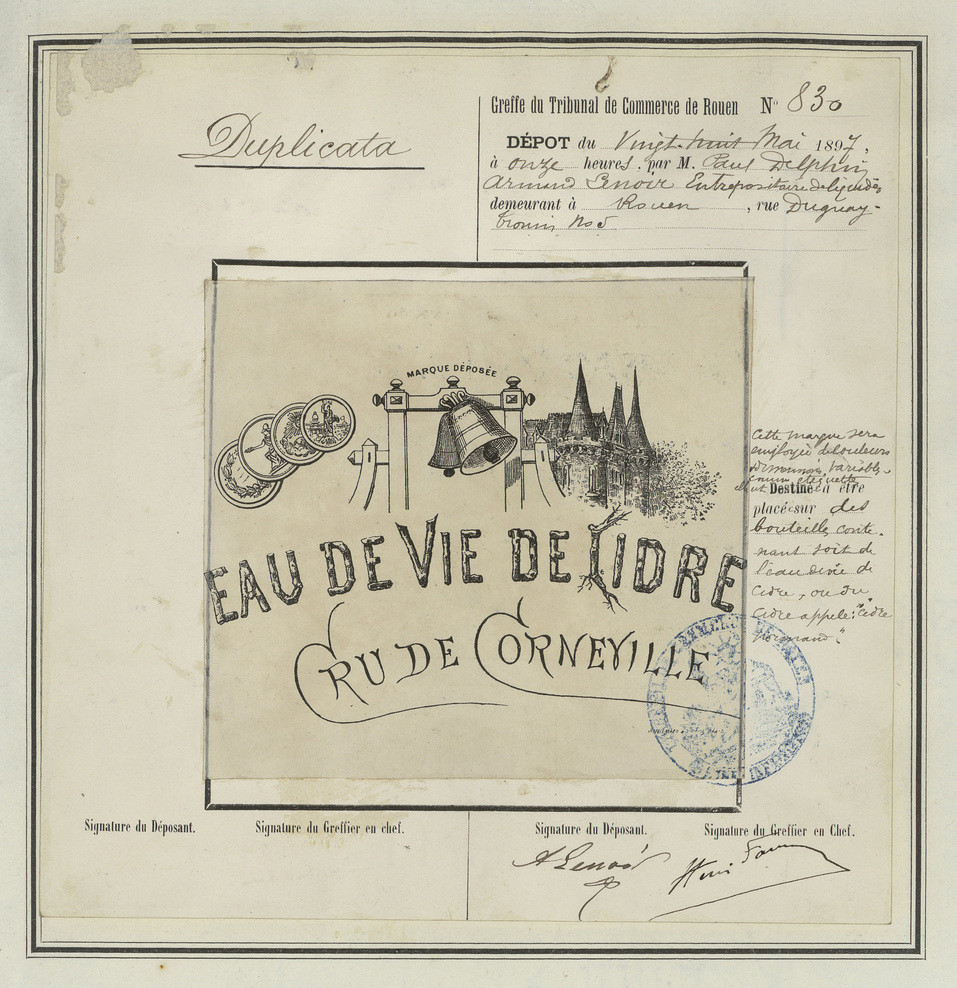 Duplicata
Greffe du Tribunal de Commerce de Rouen N° 830
DÉPOT du Vingt-huit Mai 1897,
à onze heures, par M. Paul Delphin
Armand Lenoir Entrepositaire de liquides
demeurant à Rouen, rue Duguay-
trouin No 5
MARQUE DÉPOSÉE
EAU DE VIE DE CIDRE
CRU DE CORNEVILLE
Cette marque sera
employée de couleurs
variables
Destiné à être
placé sur des
bouteilles conte-
nant soit de
l'eau de vie de
Cidre, ou du
Cidre appelé: "Cidre
Normand".
Signature du Déposant. Signature du Greffier en chef.
Signature du Déposant. Signature du Greffier en Chef.
A Lenoir